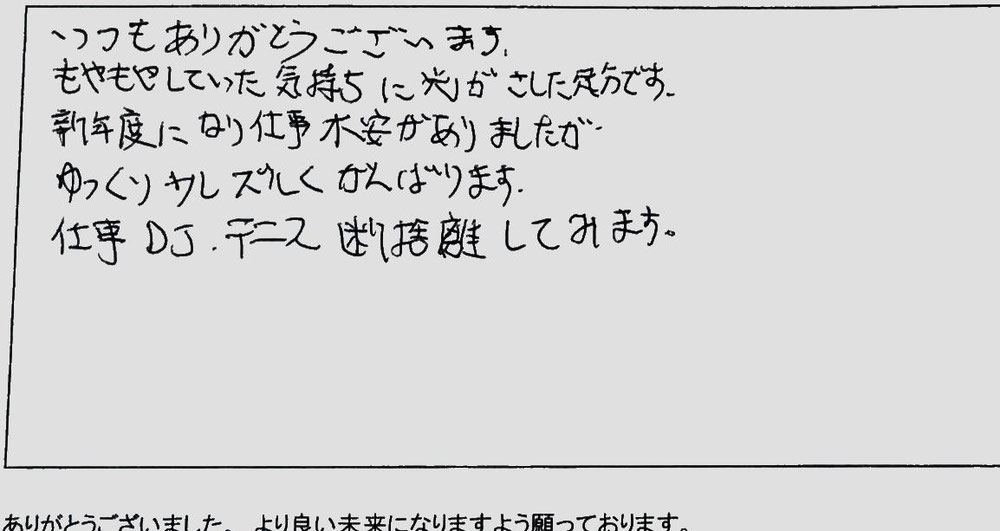 いつもありがとうございます。
もやもやしていった気持ちに光がさした気分です。
新年度になり仕事不安がありましたが
ゆっくり少しずつ楽しくがんばります。
仕事DJ.テニス断捨離してみます。
ありがとうございました。より良い未来になりますよう願っております。